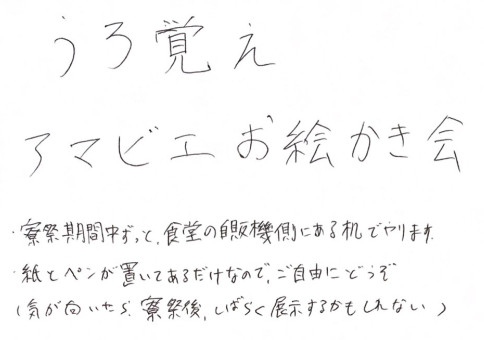 うろ覚え
アマビエお絵かき会
・寮祭期間中ずっと、食堂の自販機側にある机でやります
・紙とペンが置いてあるだけなので、ご自由にどうぞ
(気が向いたら、寮祭後、しばらく展示するかもしれない)